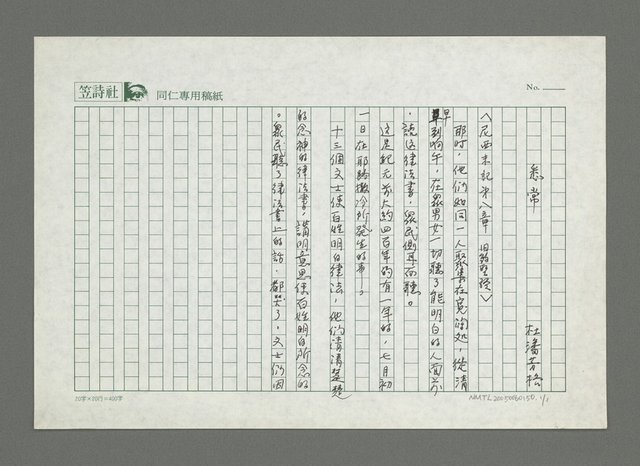 笠詩社 同仁專用稿紙
No.
悲常
杜潘芳格
〈尼西米記第八章 舊約聖經〉
那時,他們如同一人聚集在寬濶処,從清
早到晌午,在眾男女一切聽了能明白的人面前
,讀這律法書,眾民側耳而聽。
這是紀元前大約四百年的有一年的,七月初
一日在耶路撒冷所發生的事。
十三個文士使百姓明白律法,他們清清楚楚
的念神的律法書,講明意思使百姓明白所念的
。眾民聽了律法書上的話,都哭了,文士們因
20字×20行=400字
NMTL20050060150. 1/1